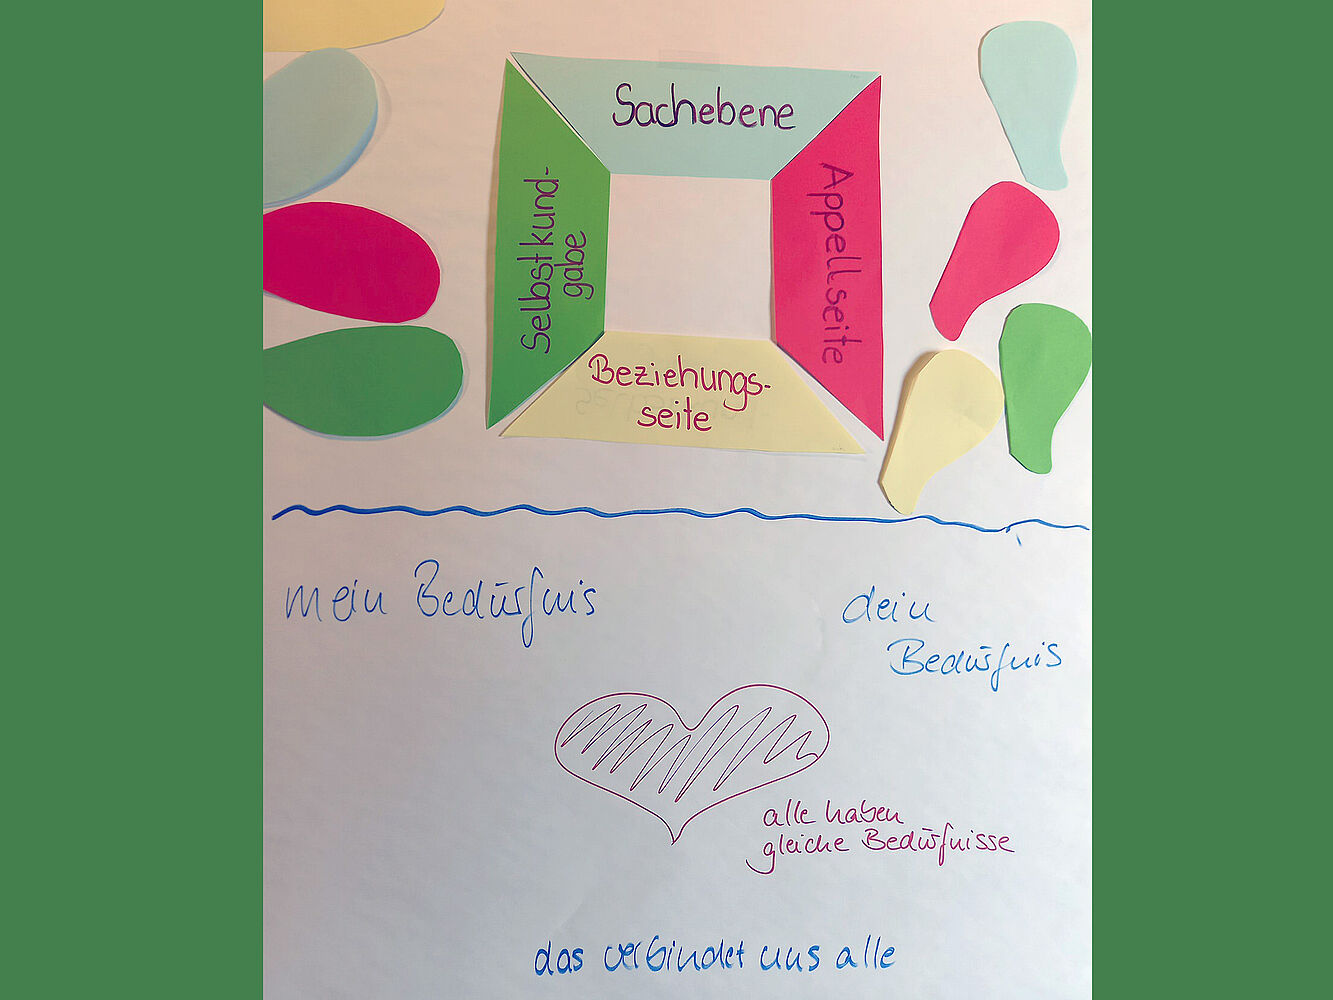 Sachebene
Selbstkund-
gabe
Appellseite
Beziehungs-
seite
mein Bedürfnis
dein
Bedürfnis
alle haben
gleiche Bedürfnisse
das verbindet uns alle